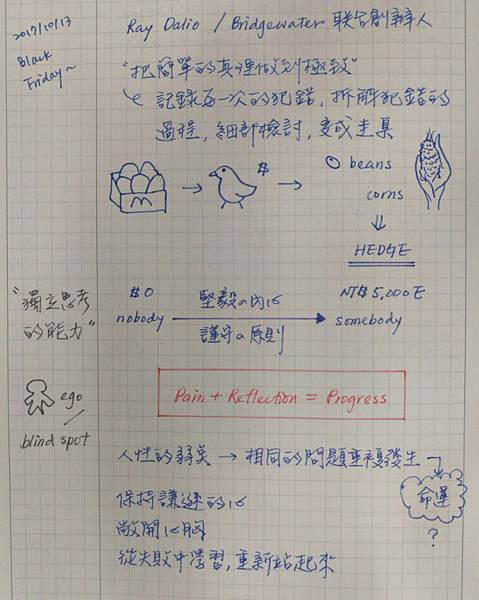 2017/10/13
Black
Friday~
Ray Dalio / Bridgewater 联合創辦人
"把簡單的真理做到極致"
記錄每一次的犯錯, 拆解犯錯的
過程, 細部檢討, 變成主臬
$
beans
corns
HEDGE
"獨立思考
的能力"
$0
nobody
堅毅の內心
謹守の原則
NT$ 5,000E
somebody
ego
blind spot
Pain + Reflection = Progress
人性的弱點 → 相同的問題重複發生
命運
?
保持謙遜的心
敞開心胸
從失敗中學習, 重新站起來